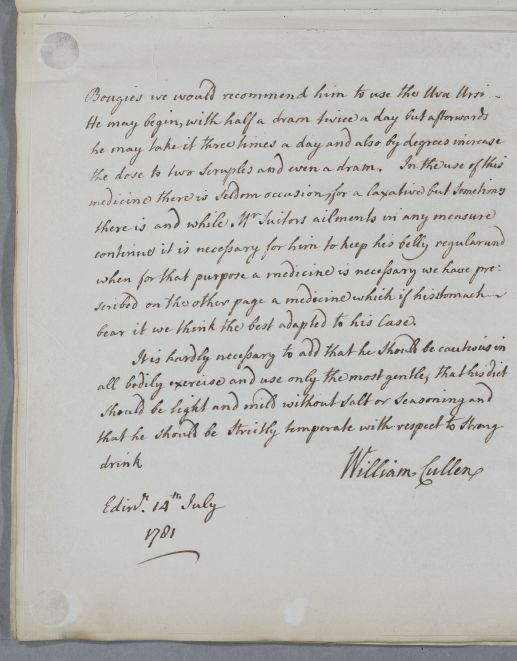 Bougies we would recommend him to use the Uva Ursi
He may begin, with half a dram twice a day but afterwards
he may take it three times a day and also by degrees increase
the dose to two scruples and even a dram. In the use of this
medicine there is seldom occasion, for a laxative but sometimes
there is and while Mr Suitors ailments in any measure
continue it is necessary for him to keep his belly regular and
when for that purpose a medicine is necessary we have pre:
scribed on the other page a medicine which if his stomach
bear it we think the best adapted to his Case.
It is hardly necessary to add that he should be cautious in
all bodily exercise and use only the most gentle, that his diet
should be light and mild without salt or seasoning and
that he should be strictly temperate with respect to strong
drink
William Cullen
Edinr. 14th July
1781